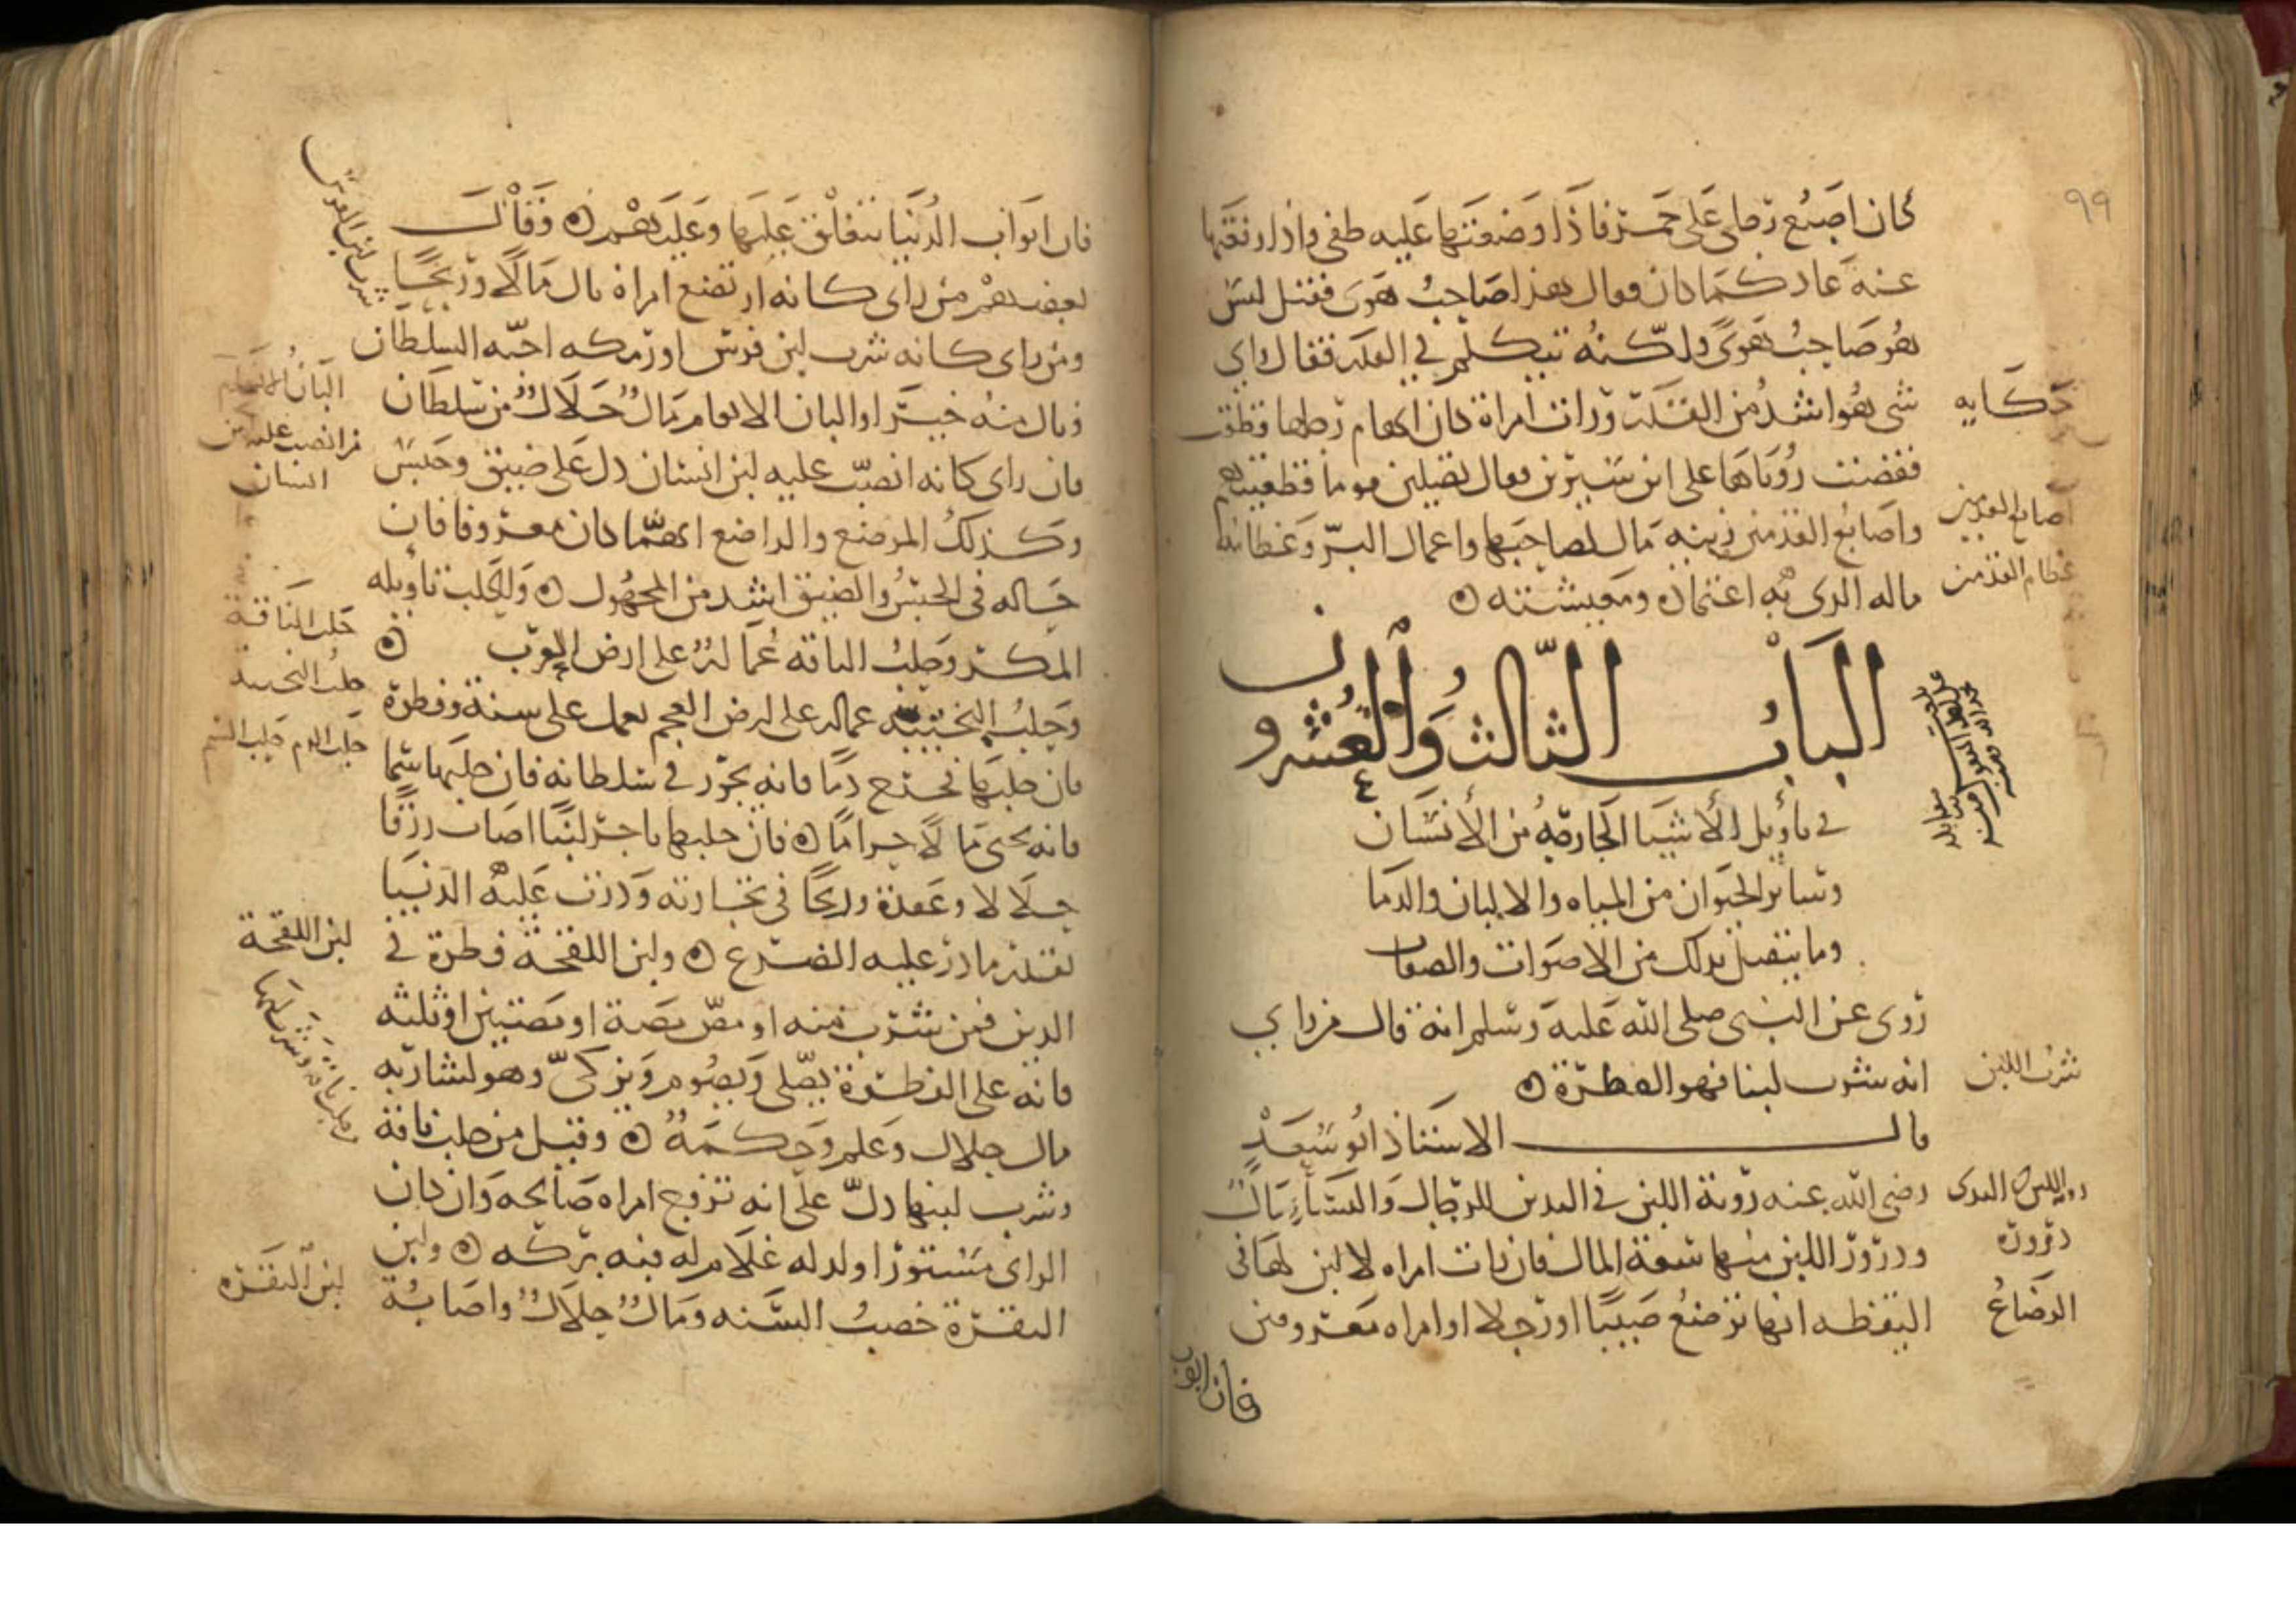 ٩٩
كان اصبع رجلى على جمر فاذا وضعتها عليه طفى واذا رفعتها
عنه عاد كما كان فقال هذا صاحب هوى فقيل ليس
هو صاحب هوى ولكنه يتكلم في القدر فقال اي
شى هو اشد من القدر ورات امراة كان ابهام رجلها قطعت
فقصت روياها على ابن سيرين فقال تصلين قوما قطعتيهم
واصابع القدمين زينه مال لصاحبها واعمال البر وعظامه
ماله الذى به اعتماده ومعيشته ه
حكايه
اصابع القدمين
عظام القدمين
الباب الثالث والعشرون
في تاويل الاشيا الخارجه من الانسان
وسائر الحيوان من المياه والالبان والدما
وما يتصل بذلك من الاصوات والصفات
روى عن النبى صلى الله عليه وسلم انه قال من راي
انه شرب لبنا فهو الفطرة ه
شرب اللبن
قال الاستاذ ابو سعد
رضى الله عنه روية اللبن في الثدين للرجال والنساء مال
ودرور اللبن منها سعة المال فان رات امراه لا لبن لها في
اليقظه انها ترضع صبيا او رجلا او امراه معروفين
دروره
الرضاع
فان ابواب
فان ابواب الدنيا تنغلق عليها وعليهم ه وقال
بعضهم من راى كانه ارتضع امراة نال مالا وربحا
ومن راى كانه شرب لبن فرس او رمكه احبه السلطان
ونال منه خيرا والبان الانعام مال حلال من سلطان
فان راى كانه انصب عليه لبن انسان دل على ضيق وحبس
وكذلك المرضع والراضع ايهما كان معروفا فان
حاله في الحبس والضيق اشد من المجهول ه والحلب تاويله
المكر وحلب الناقه عمالة على ارض العرب ه
وحلب البختيه عماله على ارض العجم يعمل على سنة وفطرة
فان حلبها فخرج دما فانه يجور في سلطانه فان حلبها سما
فانه يجبى مالا حراما ه فان حلبها تاجر لبنا اصاب رزقا
حلالا وعقدة وربحا في تجارته ودرت عليه الدنيا
بقدر ما در عليه الضرع ه ولبن اللقحة فطرة في
الدين فمن شرب منه او مص مصة او مصتين او ثلثه
فانه على الفطرة يصلى ويصوم ويزكى وهو لشاربه
مال حلال وعلم وحكمة ه وقيل من حلب ناقة
وشرب لبنها دل على انه تزوج امراه صالحه وان كان
الراى مستورا ولد له غلام له فيه بركه ه ولبن
البقرة خصب السنه ومال حلال واصابة
شرب لبن الفرس
من انصب عليه لبن
انسان
حلب الناقة
حلب البختيه
حلب الدم حلب السم
لبن اللقحة
لبن البقره